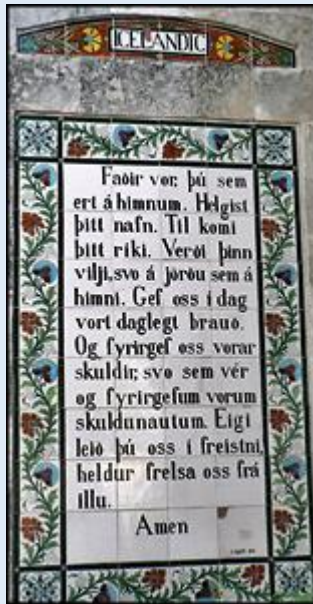 ICELANDIC
Faðir vor, þú sem
ert á himnum. Helgist
þitt nafn. Til komi
þitt ríki. Verði þinn
vilji, svo á jörðu sem á
himni. Gef oss í dag
vort daglegt brauð.
Og fyrirgef oss vorar
skuldir, svo sem vér
og fyrirgefum vorum
skuldunautum. Eigi
leið þú oss í freistni,
heldur frelsa oss frá
illu.
Amen